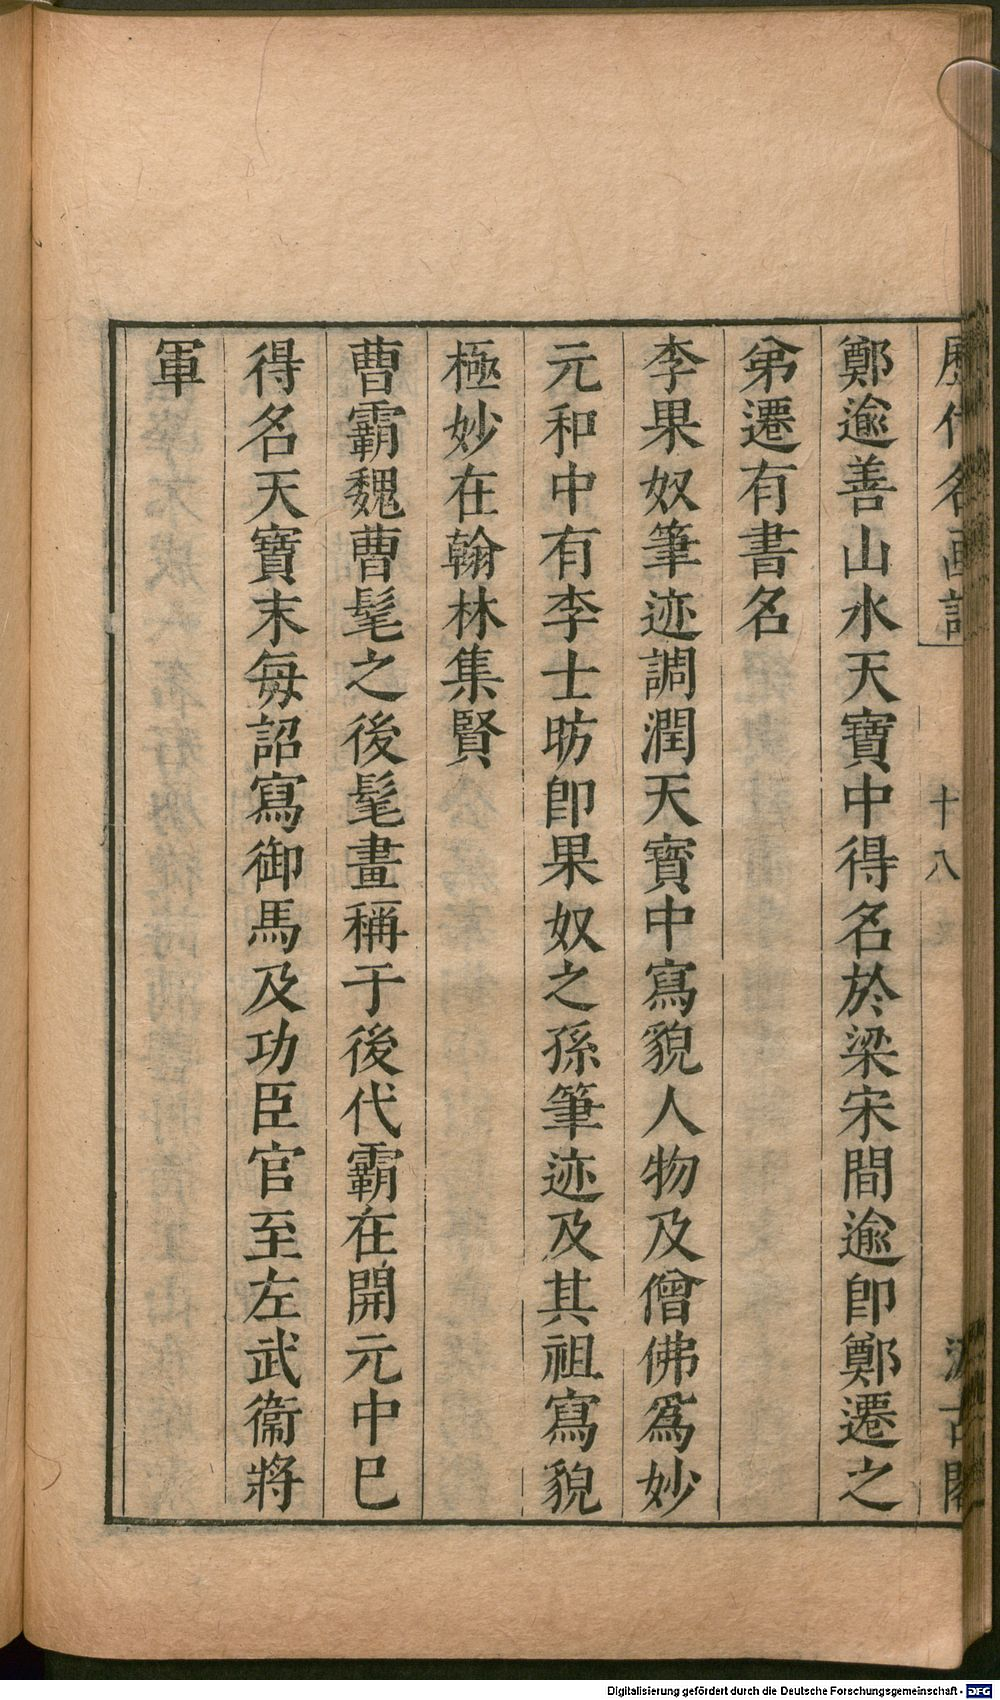 歷代名画記
十八
汲古閣
鄭逾善山水天寶中得名於梁宋間逾卽鄭遷之
弟遷有書名
李果奴筆迹調潤天寶中寫貌人物及僧佛爲妙
元和中有李士昉卽果奴之孫筆迹及其祖寫貌
極妙在翰林集賢
曹霸魏曹髦之後髦畫稱于後代霸在開元中巳
得名天寶末每詔寫御馬及功臣官至左武衞將
軍
Digitalisierung gefördert durch die Deutsche Forschungsgemeinschaft - DFG